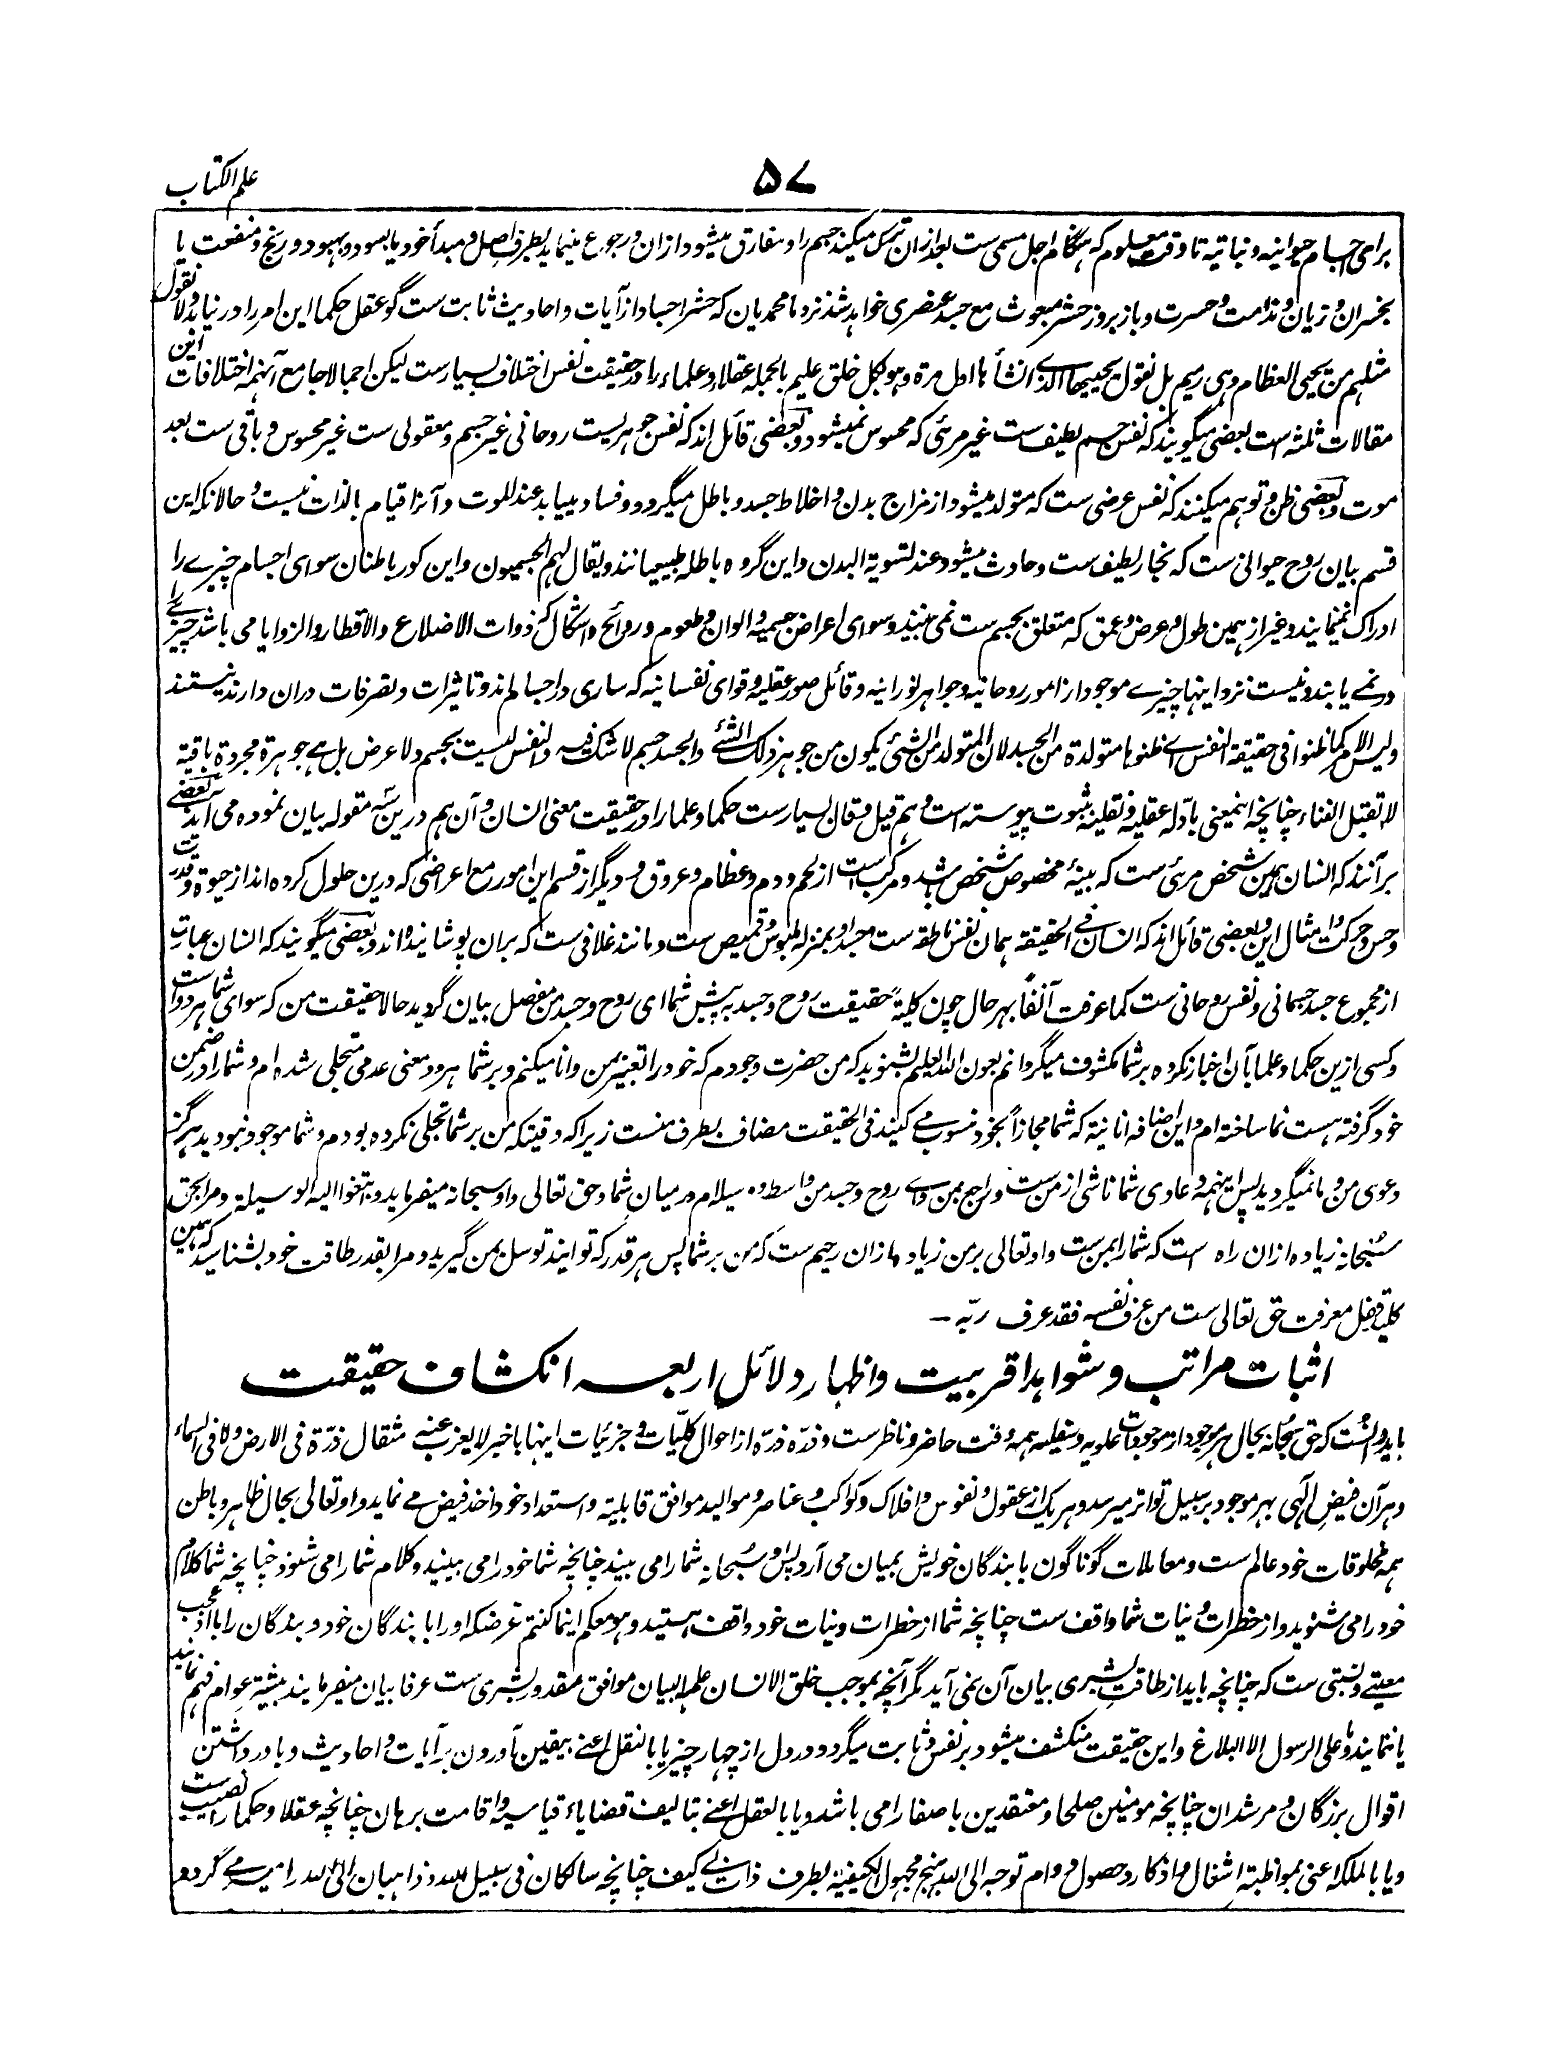 علم الکتاب
۵۷
برای اجسام حیوانیه و نباتیه تا وقت معلوم که هنگام اجل مسمی ست بعد ازان ترک میکند جسم را و مفارق میشود ازان و رجوع مینماید بطرف اصل و مبدأ خود یا بسود و بهبود و رنج و منفعت یا
بخسران و زیان و ندامت و حسرت و باز بروز حشر مبعوث مع جسد عنصری خواهد شد نزد ما محمدیان که حشر اجساد از آیات و احادیث ثابت ست گو عقل حکما این امر را در نیابد و لا نقول
مثلهم من یحیی العظام وهی رمیم بل نقول یحییها الذی انشأها اول مرة وهو بکل خلق علیم بالجمله عقلا و علماء را در حقیقت نفس اختلاف بسیارست لیکن اجمالا جامع آنهمه اختلافات این
مقالات ثلثه ست بعضی میگویند که نفس جسم لطیف ست غیر مرئی که محسوس نمیشود و بعضی قائل اند که نفس جوهریست روحانی غیر جسم و معقولی ست غیر محسوس و باقی ست بعد
موت و بعضی ظن و توهم میکنند که نفس عرضی ست که متولد میشود از مزاج بدن و اخلاط جسد و باطل میگردد و فساد مییابد عند الموت و آنرا قیام بالذات نیست و حالانکه این
قسم بیان روح حیوانی ست که بخار لطیف ست و حادث میشود عند تسویة البدن و این گروه باطله طبیعیانند و یقال لهم الجسمیون و این کور باطنان سوای اجسام چیزے را
ادراک نمینمایند و غیر از همین طول و عرض و عمق که متعلق بجسم ست نمی بینند و سوای اعراض جسمیه و الوان و طعوم و روائح و اشکال که ذوات الاضلاع والاقطار والزوایا می باشد چیزے را
در نمے یابند و نیست نزد اینها چیزے موجود از امور روحانیه و جواهر نورانیه و قائل صور عقلیه و قوای نفسانیه که ساری در اجسام اند و تاثیرات و تصرفات دران دارند نیستند
ولیس الامر کما ظنوا فی حقیقة النفس اے ظنوها متولدة من الجسد لان المتولد من الشئ یکون من جوهر ذلک الشئے والجسد جسم لا شک فیه والنفس لیست بجسم ولا عرض بل هے جوهرة مجردة باقیة
لا تقبل الفناء چنانچه اینمعنی بادلهٔ عقلیه و نقلیه بثبوت پیوسته است و هم قیل و قال بسیارست حکما و علما را در حقیقت معنی انسان و آن هم درین سه مقوله بیان نموده می آید بعضے
برآنند که انسان همین شخص مرئی ست که ببینهٔ مخصوص مشخص باشد و مرکب است از لحم و دم و عظام و عروق و دیگر از قسم این امور مع اعراضی که درین حلول کرده اند از حیوة و قدرت
و حس و حرکت و امثال این و بعضی قائل اند که انسان فے الحقیقة همان نفس ناطقه ست و جسد او بمنزلهٔ ملبوس و قمیص ست و مانند غلافی ست که بران پوشانیده اند و بعضی میگویند که انسان عبارت
از مجموع جسد جسمانی و نفس روحانی ست کما عرفت آنفاً بهرحال چون کلیةً حقیقت روح و جسد به پیش شما ای روح و جسد من مفصل بیان گردید حالا حقیقت من که سوای شما هر دو است
و کسی ازین حکما و علما بآن اخبار نکرده بر شما مکشوف میگردانم بعون الله العلیم بشنوید که من حضرت وجودم که خود را تعبیر بمن و انا میکنم و بر شما هر دو معنی عدمی متجلی شده ام و شما را در ضمن
خود گرفته هست نما ساخته ام و این اضافهٔ انانیة که شما مجازاً بخود منسوب مے کنید فی الحقیقت مضاف بطرف منست زیرا که وقتیکه من بر شما تجلی نکرده بودم و شما موجود نبودید هرگز
دعوی من و ما نمیگردید پس اینهمه دعاوی شما ناشی از من ست و راجع بمن و اے روح و جسد من واسطه و وسیله ام در میان شما و حق تعالی و او سبحانه میفرماید وابتغوا الیه الوسیلة و مرا بحق
سبحانه زیاده ازان راه است که شما را بمن ست و او تعالی بر من زیاده ازان رحیم ست که من بر شما پس هر قدر که توانید توسل بمن گیرید و مرا بقدر طاقت خود بشناسید که همین
کلید قفل معرفت حق تعالی ست من عرف نفسه فقد عرف ربّه ـ
اثبات مراتب و شواهد اقربیت و اظهار دلائل اربعه انکشاف حقیقت
باید دانست که حق سبحانه بحال هر موجود از موجودات علویه و سفلیه همه وقت حاضر و ناظرست و ذره ذره از احوال کلّیات و جزئیات اینها باخبر لا یعزب عنه مثقال ذرّة فی الارض ولا فی السماء
و هر آن فیض الٰهی بهر موجود بر سبیل تواتر میرسد و هر یک از عقول و نفوس و افلاک و کواکب و عناصر و موالید موافق قابلیة و استعداد خود اخذ فیض مے نماید و او تعالی بحال ظاهر و باطن
همه مخلوقات خود عالم ست و معاملات گوناگون با بندگان خویش بمیان می آرد پس او سبحانه شما را می بیند چنانچه شما خود را می بینید و کلام شما را می شنود چنانچه شما کلام
خود را می شنوید و از خطرات و نیات شما واقف ست چنانچه شما از خطرات و نیات خود واقف هستید و هو معکم اینما کنتم غرضکه او را با بندگان خود و بندگان را با او عجب
معیتے و نسبتی ست که چنانچه باید از طاقت بشری بیان آن نمی آید مگر آنچه بموجب خلق الانسان علمه البیان موافق مقدور بشری ست عرفا بیان میفرمایند بیشتر عوام فهم نمایند
یا ننمایند و ما علی الرسول الا البلاغ و این حقیقت منکشف میشود بر نفس و ثابت میگردد در دل از چهار چیز یا بالنقل اعنے بیقین آوردن بر آیات و احادیث و باور داشتن
اقوال بزرگان و مرشدان چنانچه مومنین صلحا و معتقدین باصفا را می باشد و یا بالعقل اعنے بتالیف قضایاء قیاسیه و اقامت برهان چنانچه عقلا و حکما را نصیب ست
و یا بالملکه اعنی بمواظبة اشغال و اذکار و حصول دوام توجه الی الله بنهج مجهول الکیفیة بطرف ذات بے کیف چنانچه سالکان فی سبیل الله و ذاهبان الی الله را میسر مے گردد